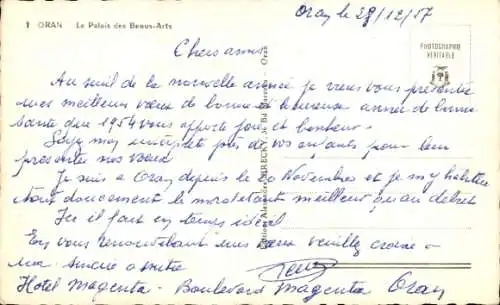 1 ORAN Le Palais des Beaux-Arts
Oran le 28/12/57
PHOTOGRAPHIE
VÉRITABLE
Chers amis
Au seuil de la nouvelle année je viens vous présenter
mes meilleurs vœux de bonne et heureuse année de bonne
santé que 1954 vous apporte joie et bonheur.
mon interprète près de vos enfants pour leur
présenter nos vœux
Je suis à Oran depuis le 20 Novembre et je m'y habitue
tout doucement le moral étant meilleur qu'au début
Ici il fait un temps idéal
En vous renouvelant mes vœux veuillez croire à
ma amitié
Hotel Magenta - Boulevard Magenta Oran